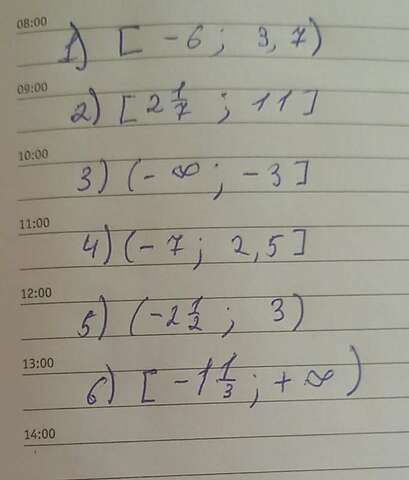 08:00
1) [ -6 ; 3,7)
09:00
2) [2 1/7 ; 11]
10:00
3) (-∞ ; -3]
11:00
4) (-7 ; 2,5]
12:00
5) (-2 1/2 ; 3)
13:00
6) [ -1 1/3 ; +∞)
14:00